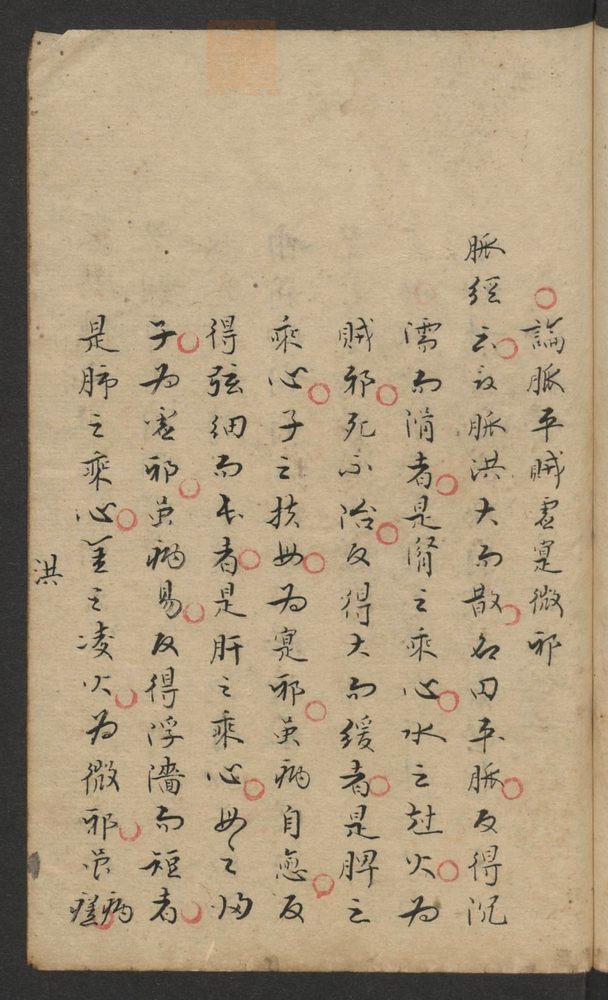 論脈平賊虗寔微邪
脈經云設脈洪大而散名曰平脈反得沉
濡而滑者是腎之乘心水之尅火為
賊邪死不治反得大而緩者是脾之
乘心子之扶母為寔邪虽病自愈反
得弦細而長者是肝之乘心母之归
子為虗邪虽病易反得浮濇而短者
是肺之乘心金之凌火為微邪虽病瘥
洪